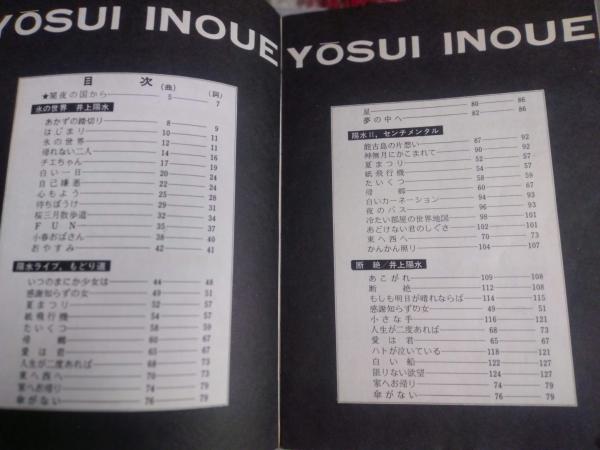 YŌSUI INOUE
目次 (曲) (詞)
★闇夜の国から 5 7
氷の世界 井上陽水
あかずの踏切り 8 9
はじまり 10 11
氷の世界 12 11
帰れない二人 14 16
チエちゃん 17 19
白い一日 20 24
自己嫌悪 22 24
心もよう 25 28
待ちぼうけ 29 31
桜三月散歩道 32 34
FUN 35 37
小春おばさん 38 40
おやすみ 42 41
陽水ライブ,もどり道
いつのまにか少女は 44 48
感謝知らずの女 49 51
夏まつり 52 57
紙飛行機 54 57
たいくつ 58 59
帰郷 60 67
愛は君 65 67
人生が二度あれば 68 73
東へ西へ 70 73
家へお帰り 74 79
傘がない 76 79
YŌSUI INOUE
星 80 86
夢の中へ 82 86
陽水II,センチメンタル
能古島の片想い 87 92
神無月にかこまれて 90 92
夏まつり 52 57
紙飛行機 54 57
たいくつ 58 59
帰郷 60 67
白いカーネーション 94 93
夜のバス 96 93
冷たい部屋の世界地図 98 101
あどけない君のしぐさ 102 101
東へ西へ 70 73
かんかん照り 104 107
断絶/井上陽水
あこがれ 109 108
断絶 112 108
もしも明日が晴れならば 114 115
感謝知らずの女 49 51
小さな手 116 121
人生が二度あれば 68 73
愛は君 65 67
ハトが泣いている 118 121
白い船 122 127
限りない欲望 124 127
家へお帰り 74 79
傘がない 76 79